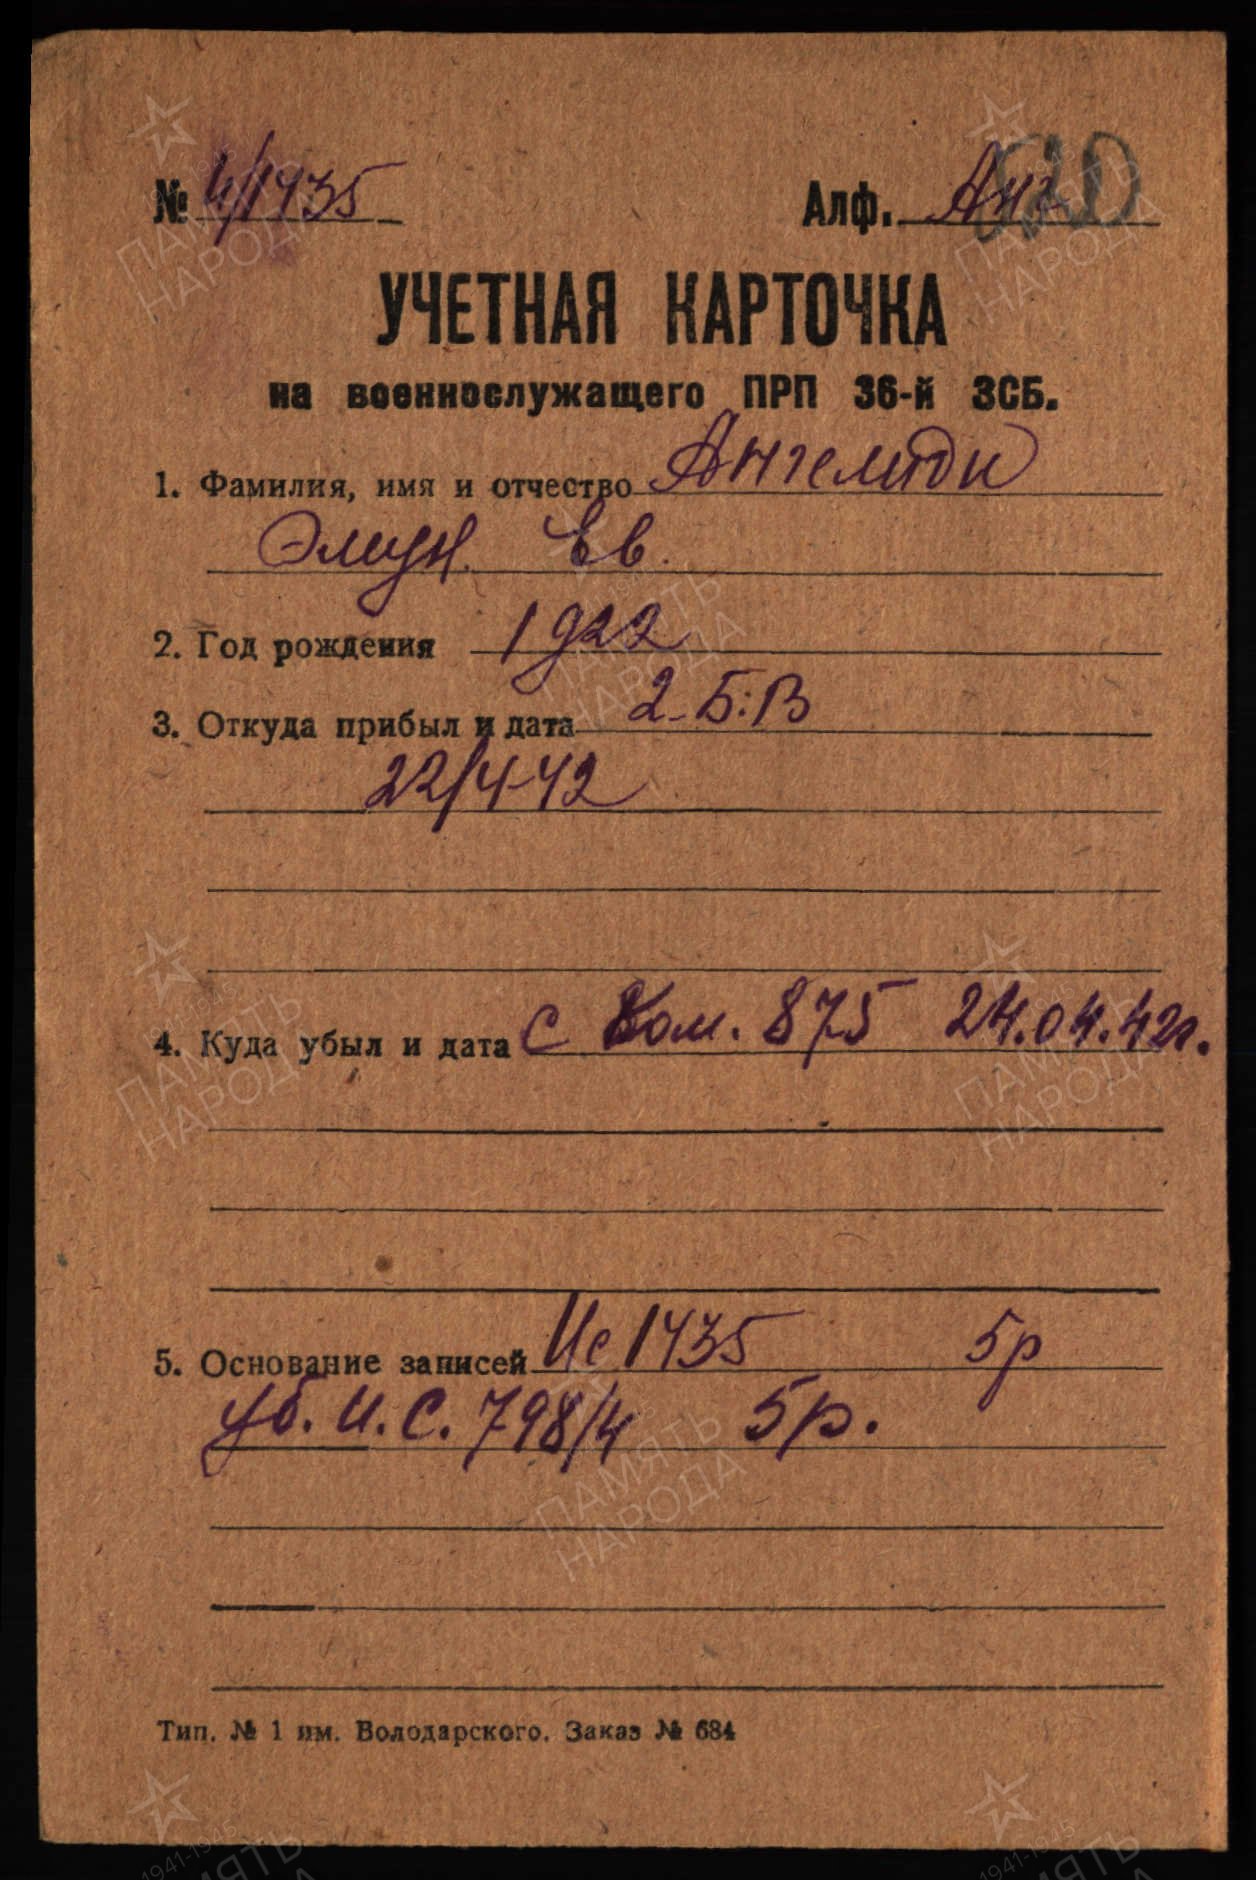 № 4/1435 Алф. Анг
520
УЧЕТНАЯ КАРТОЧКА
на военнослужащего ПРП 36-й ЗСБ.
1. Фамилия, имя и отчество Ангелиди
Ев.
2. Год рождения 1922
3. Откуда прибыл и дата 2-Б:В
22/4-42
4. Куда убыл и дата с Ком. 875 24.04.42г.
5. Основание записей Ис 1435 5р
уб. и.с. 798/4 5р.
Тип. № 1 им. Володарского. Заказ № 684
ПАМЯТЬ
НАРОДА
1941-1945